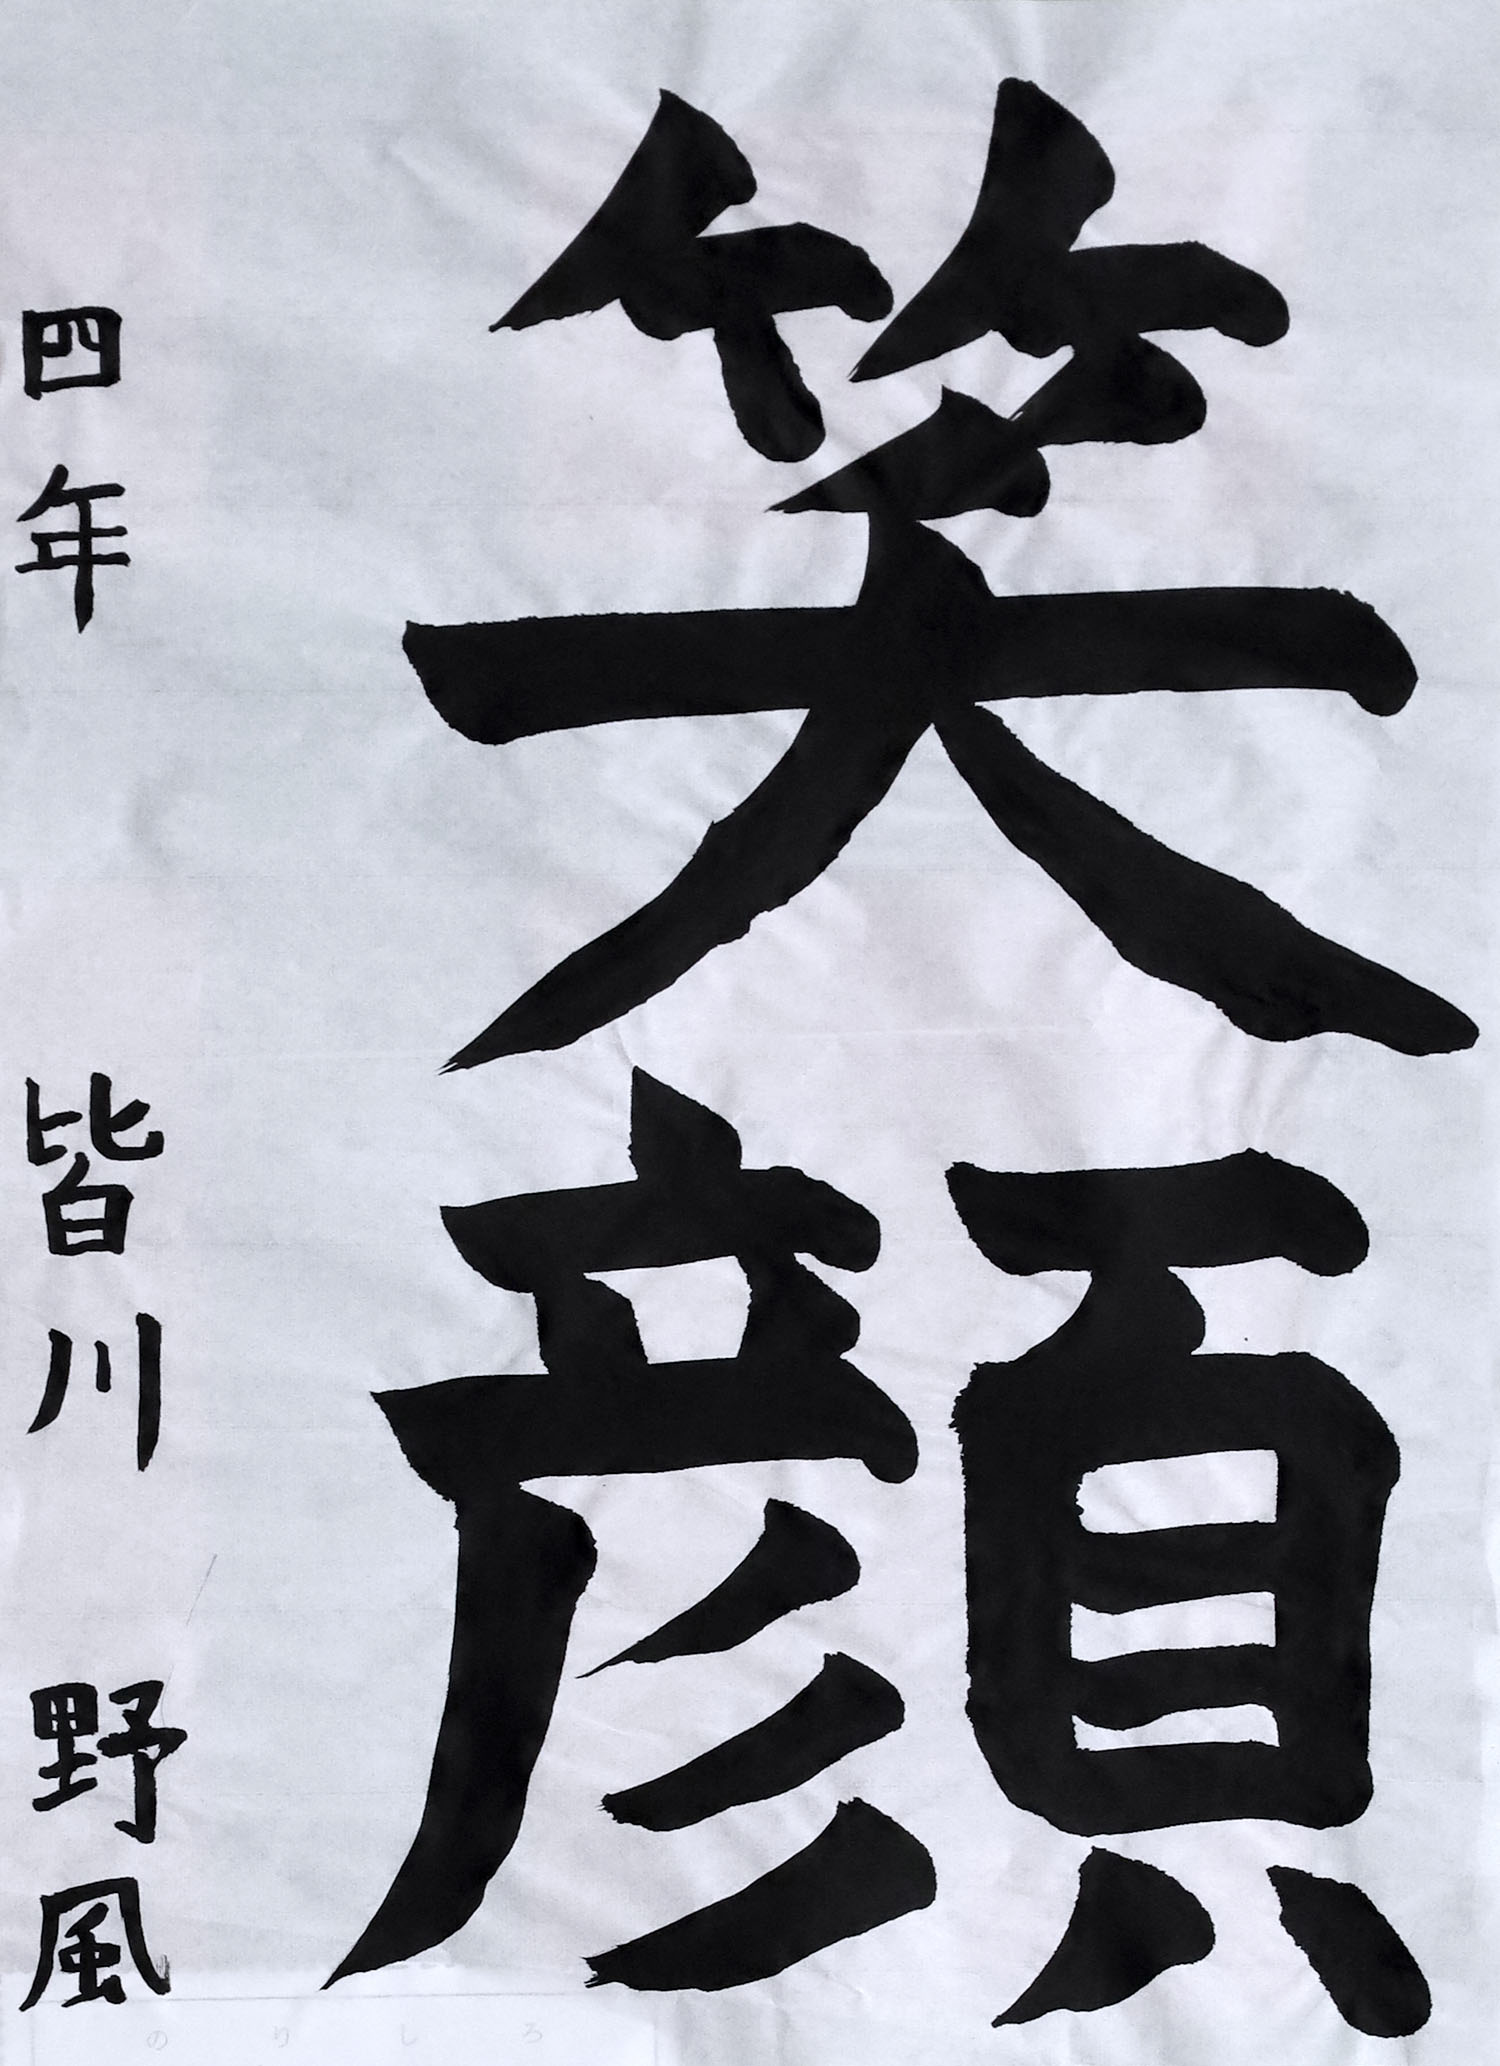 笑顔
四年 皆川 野風
のりしろ